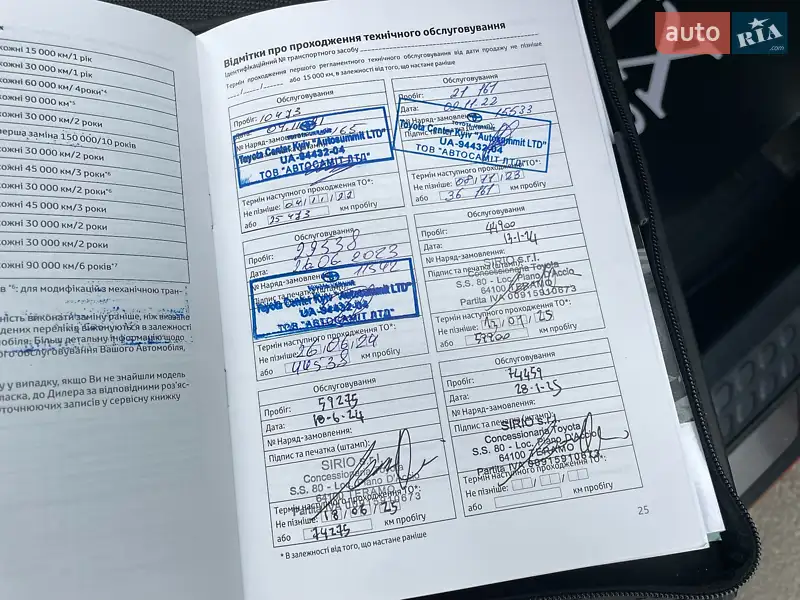 auto RIA .com
кожні 15 000 км/1 рік
кожні 30 000 км/1 рік
кожні 60 000 км/ 4роки*⁴
кожні 90 000 км*⁵
кожні 30 000 км/2 роки
перша заміна 150 000/10 років
кожні 30 000 км/2 роки
кожні 45 000 км/3 роки*⁶
кожні 30 000 км/2 роки*⁶
кожні 45 000 км/3 роки
кожні 30 000 км/2 роки
кожні 30 000 км/2 роки
кожні 90 000 км/6 років*⁷
*⁵: для модифікацій з механічною тран-
ність виконати заміну раніше, ніж вказано
дених переліків виконуються в залежності
обіля. Більш детальну інформацію щодо
ого обслуговування Вашого Автомобіля,
у у випадку, якщо Ви не знайшли модель
ласка, до Дилера за відповідними роз'яс-
точнюючих записів у сервісну книжку
Відмітки про проходження технічного обслуговування
Ідентифікаційний № транспортного засобу
Термін проходження першого регламентного технічного обслуговування від дати продажу не пізніше
або 15 000 км, в залежності від того, що настане раніше
Обслуговування
Пробіг: 10473
Дата:
№ Наряд-замовлення
Toyota Center Kyiv "Autosummit LTD"
UA-94432-04
ТОВ "АВТОСАМІТ ЛТД"
Термін наступного проходження ТО*:
Не пізніше: 04/11/22
або 25 473 км пробігу
Обслуговування
Пробіг: 21 161
Дата: 08.11.22
№ Наряд-замовлення: 15533
Toyota Center Kyiv "Autosummit LTD"
UA-94432-04
ТОВ "АВТОСАМІТ ЛТД"
Термін наступного проходження ТО*:
Не пізніше: 08/11/23
або 36 161 км пробігу
Обслуговування
Пробіг: 29538
Дата: 26.06.2023
№ Наряд-замовлення: 11542
Підпис та печатка
Toyota Center Kyiv "Autosummit LTD"
UA-94432-04
ТОВ "АВТОСАМІТ ЛТД"
Термін наступного проходження ТО*:
Не пізніше: 26/06/24
або 44538 км пробігу
Обслуговування
Пробіг: 44900
Дата: 17-1-24
№ Наряд-замовлення:
Підпис та печатка (штамп):
SIRIO s.r.l.
Concessionaria Toyota
S.S. 80 - Loc. Piano D'Accio
64100 TERAMO
Partita IVA 00915910673
Термін наступного проходження ТО*:
Не пізніше: 17/01/25
або 59900 км пробігу
Обслуговування
Пробіг: 59275
Дата: 18-6-24
№ Наряд-замовлення:
Підпис та печатка (штамп):
SIRIO
Concessionaria Toyota
S.S. 80 - Loc. Piano D'Accio
64100 TERAMO
Partita IVA 00915910673
Термін наступного проходження ТО*:
Не пізніше: 18/06/25
або 74275 км пробігу
Обслуговування
Пробіг: 74459
Дата: 28-1-25
№ Наряд-замовлення:
Підпис та печатка (штамп):
SIRIO s.r.l.
Concessionaria Toyota
S.S. 80 - Loc. Piano D'Accio
64100 TERAMO
Partita IVA 00915910673
Термін наступного проходження ТО*:
Не пізніше:
або км пробігу
* В залежності від того, що настане раніше
25